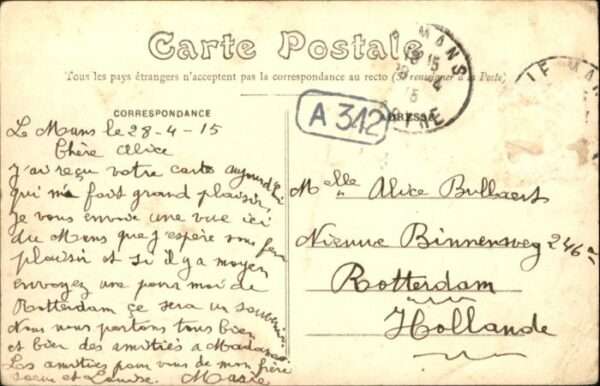 Carte Postale
Tous les pays étrangers n'acceptent pas la correspondance au recto (Se renseigner à la Poste)
CORRESPONDANCE
ADRESSE
A 312
LE MANS
Le Mans le 28-4-15
Chère Alice
j'ai reçu votre carte aujourd'hui
qui m'a fait grand plaisir,
je vous envoie une vue ici
du Mans que j'espère vous fera
plaisir et si il y a moyen
envoyez une pour moi de
Rotterdam ce sera un souvenir
Nous nous portons tous bien
et bien des amitiés a
Les amitiés pour vous de mon frère
soeur et Louise.
Melle Alice Bullaert
Nieuwe Binnenweg 246a
Rotterdam
Hollande